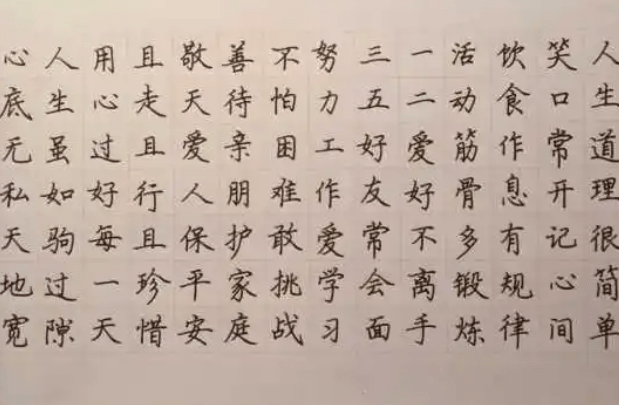 人生道理很简单
笑口常开记心间
饮食作息有规律
活动筋骨多锻炼
一二爱好不离手
三五好友常会面
努力工作爱学习
不怕困难敢挑战
善待亲朋护家庭
敬天爱人保平安
且走且行且珍惜
用心过好每一天
人生虽如驹过隙
心底无私天地宽